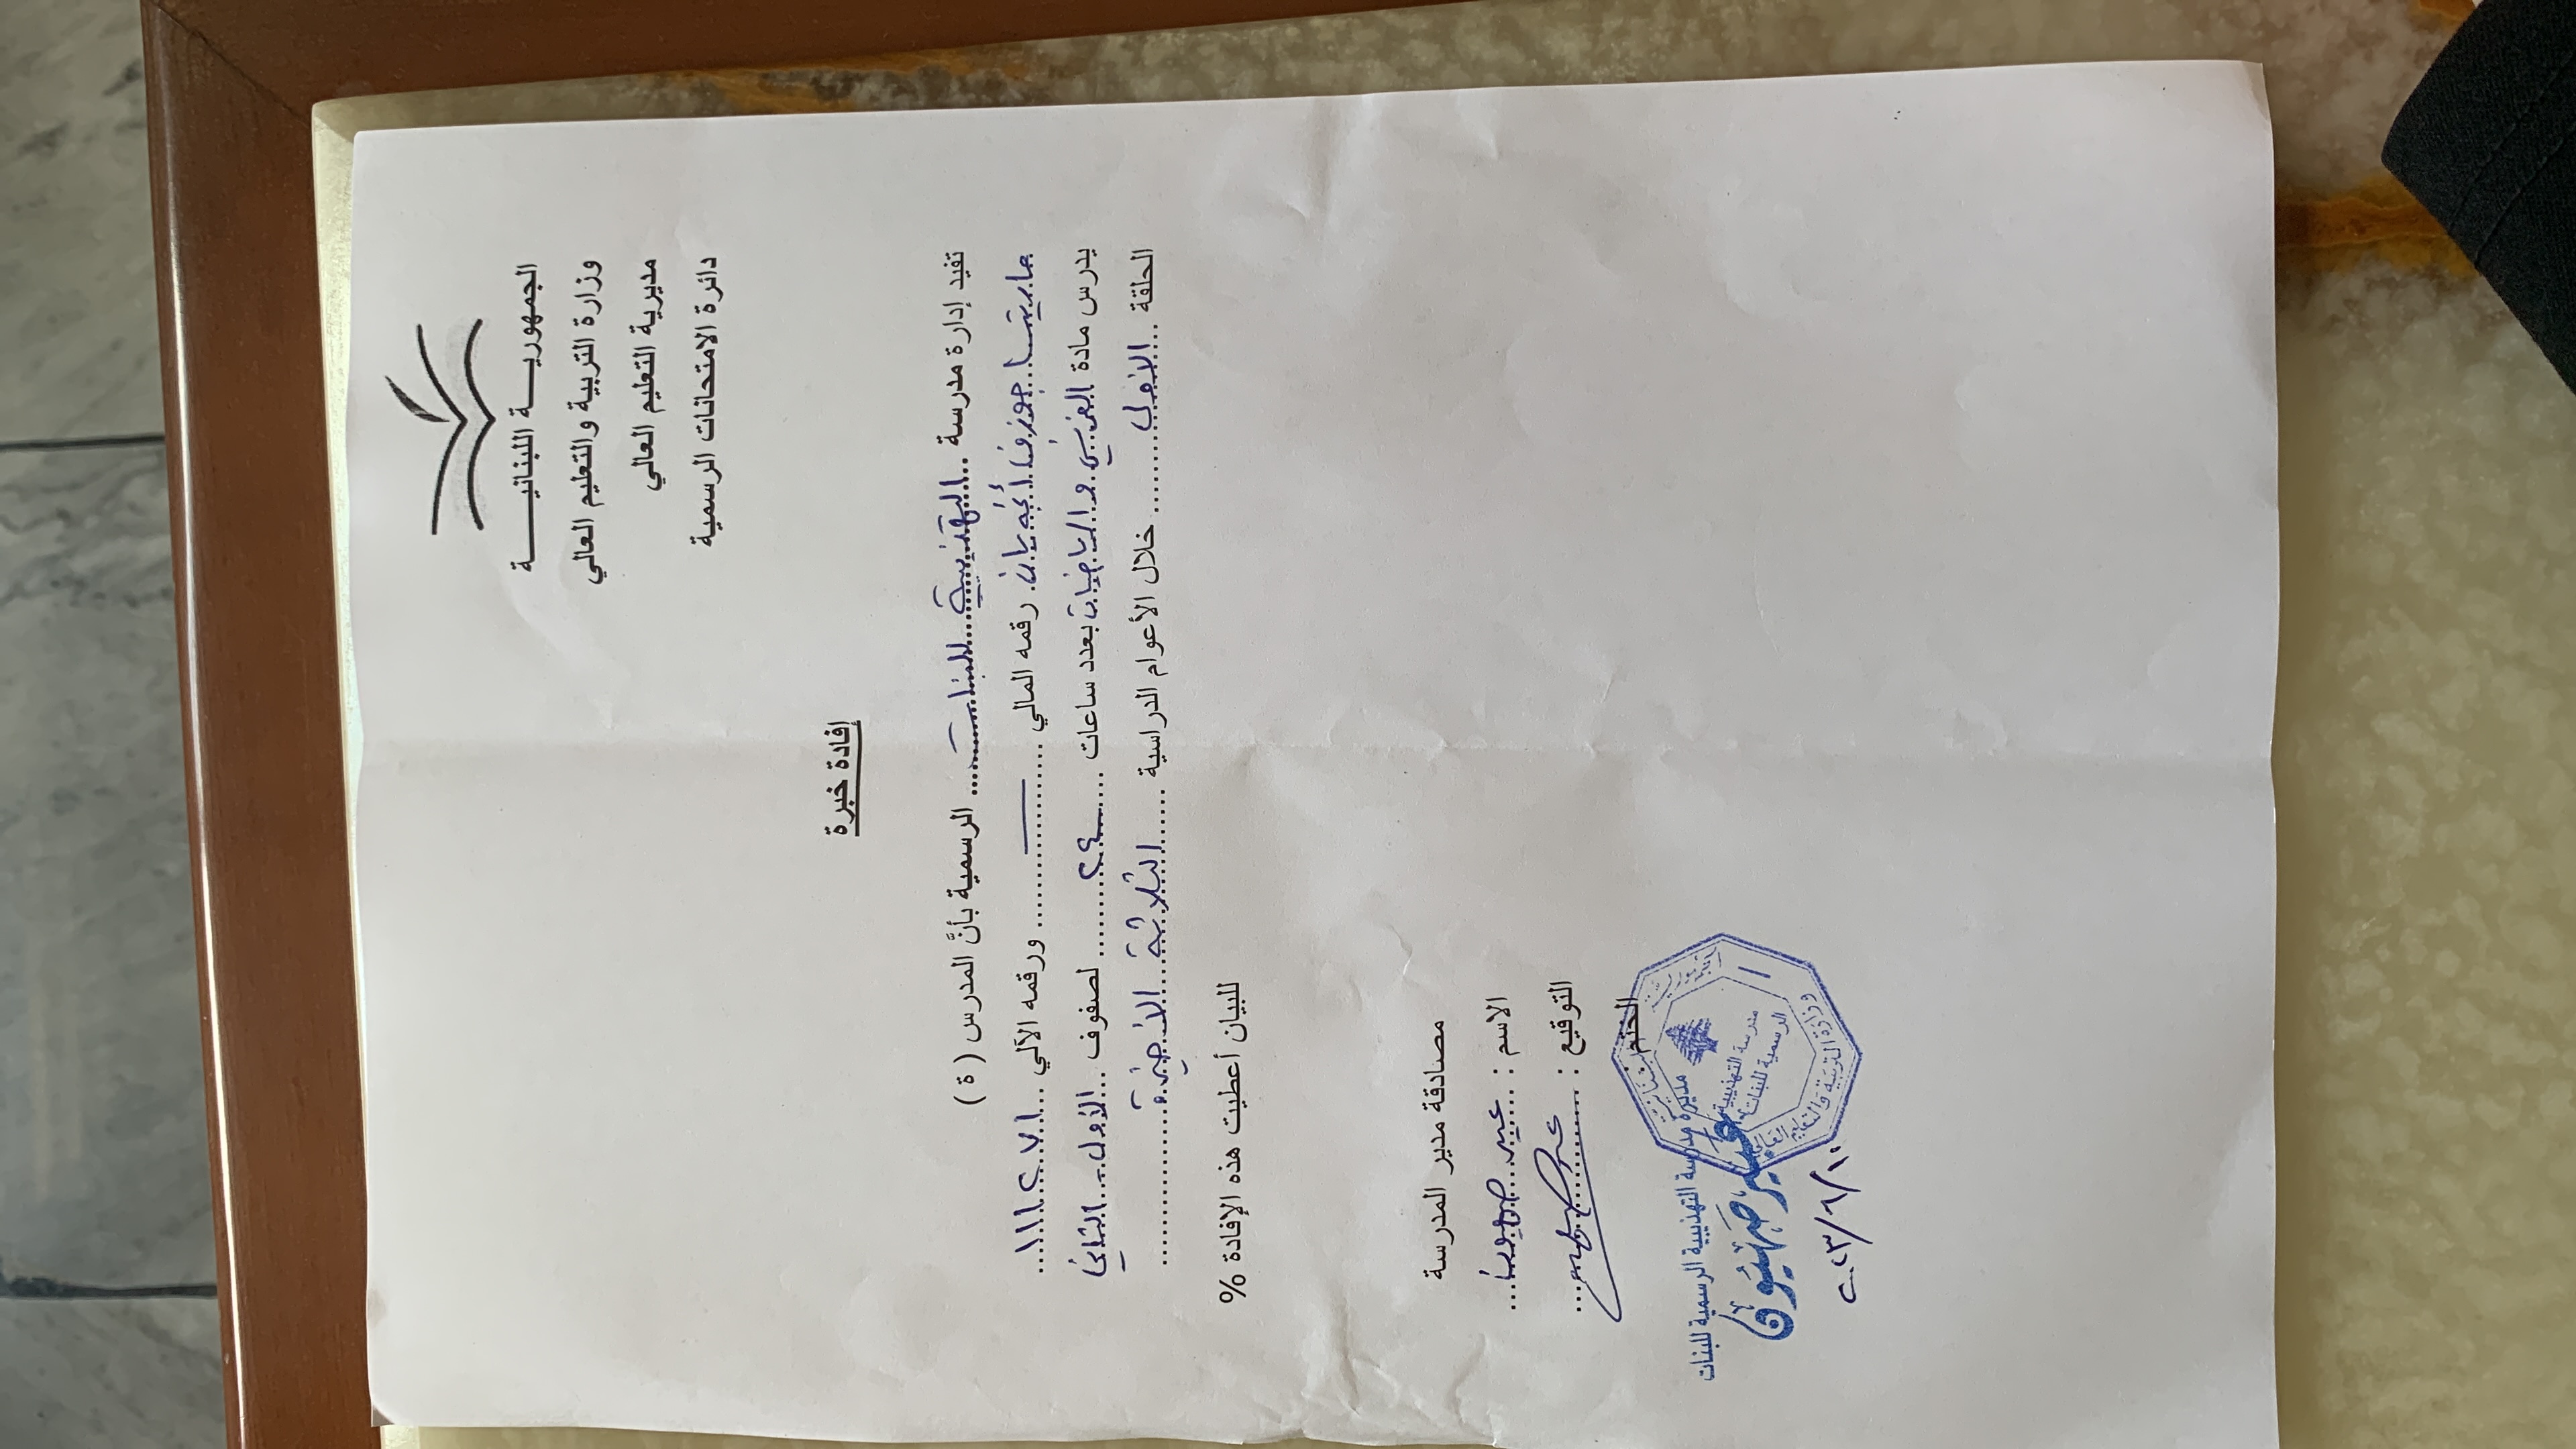 الجمهوريـــة اللبنانيـــــة
وزارة التربية والتعليم العالي
مديرية التعليم العالي
دائرة الامتحانات الرسمية
إفادة خبرة
تفيد إدارة مدرسة ..التهذيبية..للبنات...... الرسمية بأنَّ المدرس ( ة )
ماريتا جوزف رقمه المالي ........—........ ورقمه الآلي ...١١١٢٧١...
يدرس مادة الفرنسي والرياضيات بعدد ساعات ....٢٤........ لصفوف ...الأول...الثاني
الحلقة ....الأولى........ خلال الأعوام الدراسية .....الثلاثة..الأخيرة..............
للبيان أعطيت هذه الإفادة %
مصادقة مدير المدرسة
الاسم : ....عبير.......
التوقيع : ..............
الختم
وزارة التربية والتعليم العالي
مدرسة التهذيبية
الرسمية للبنات
مديرة مدرسة التهذيبية الرسمية للبنات
عبير
٢٠٢٣/٦/١٠